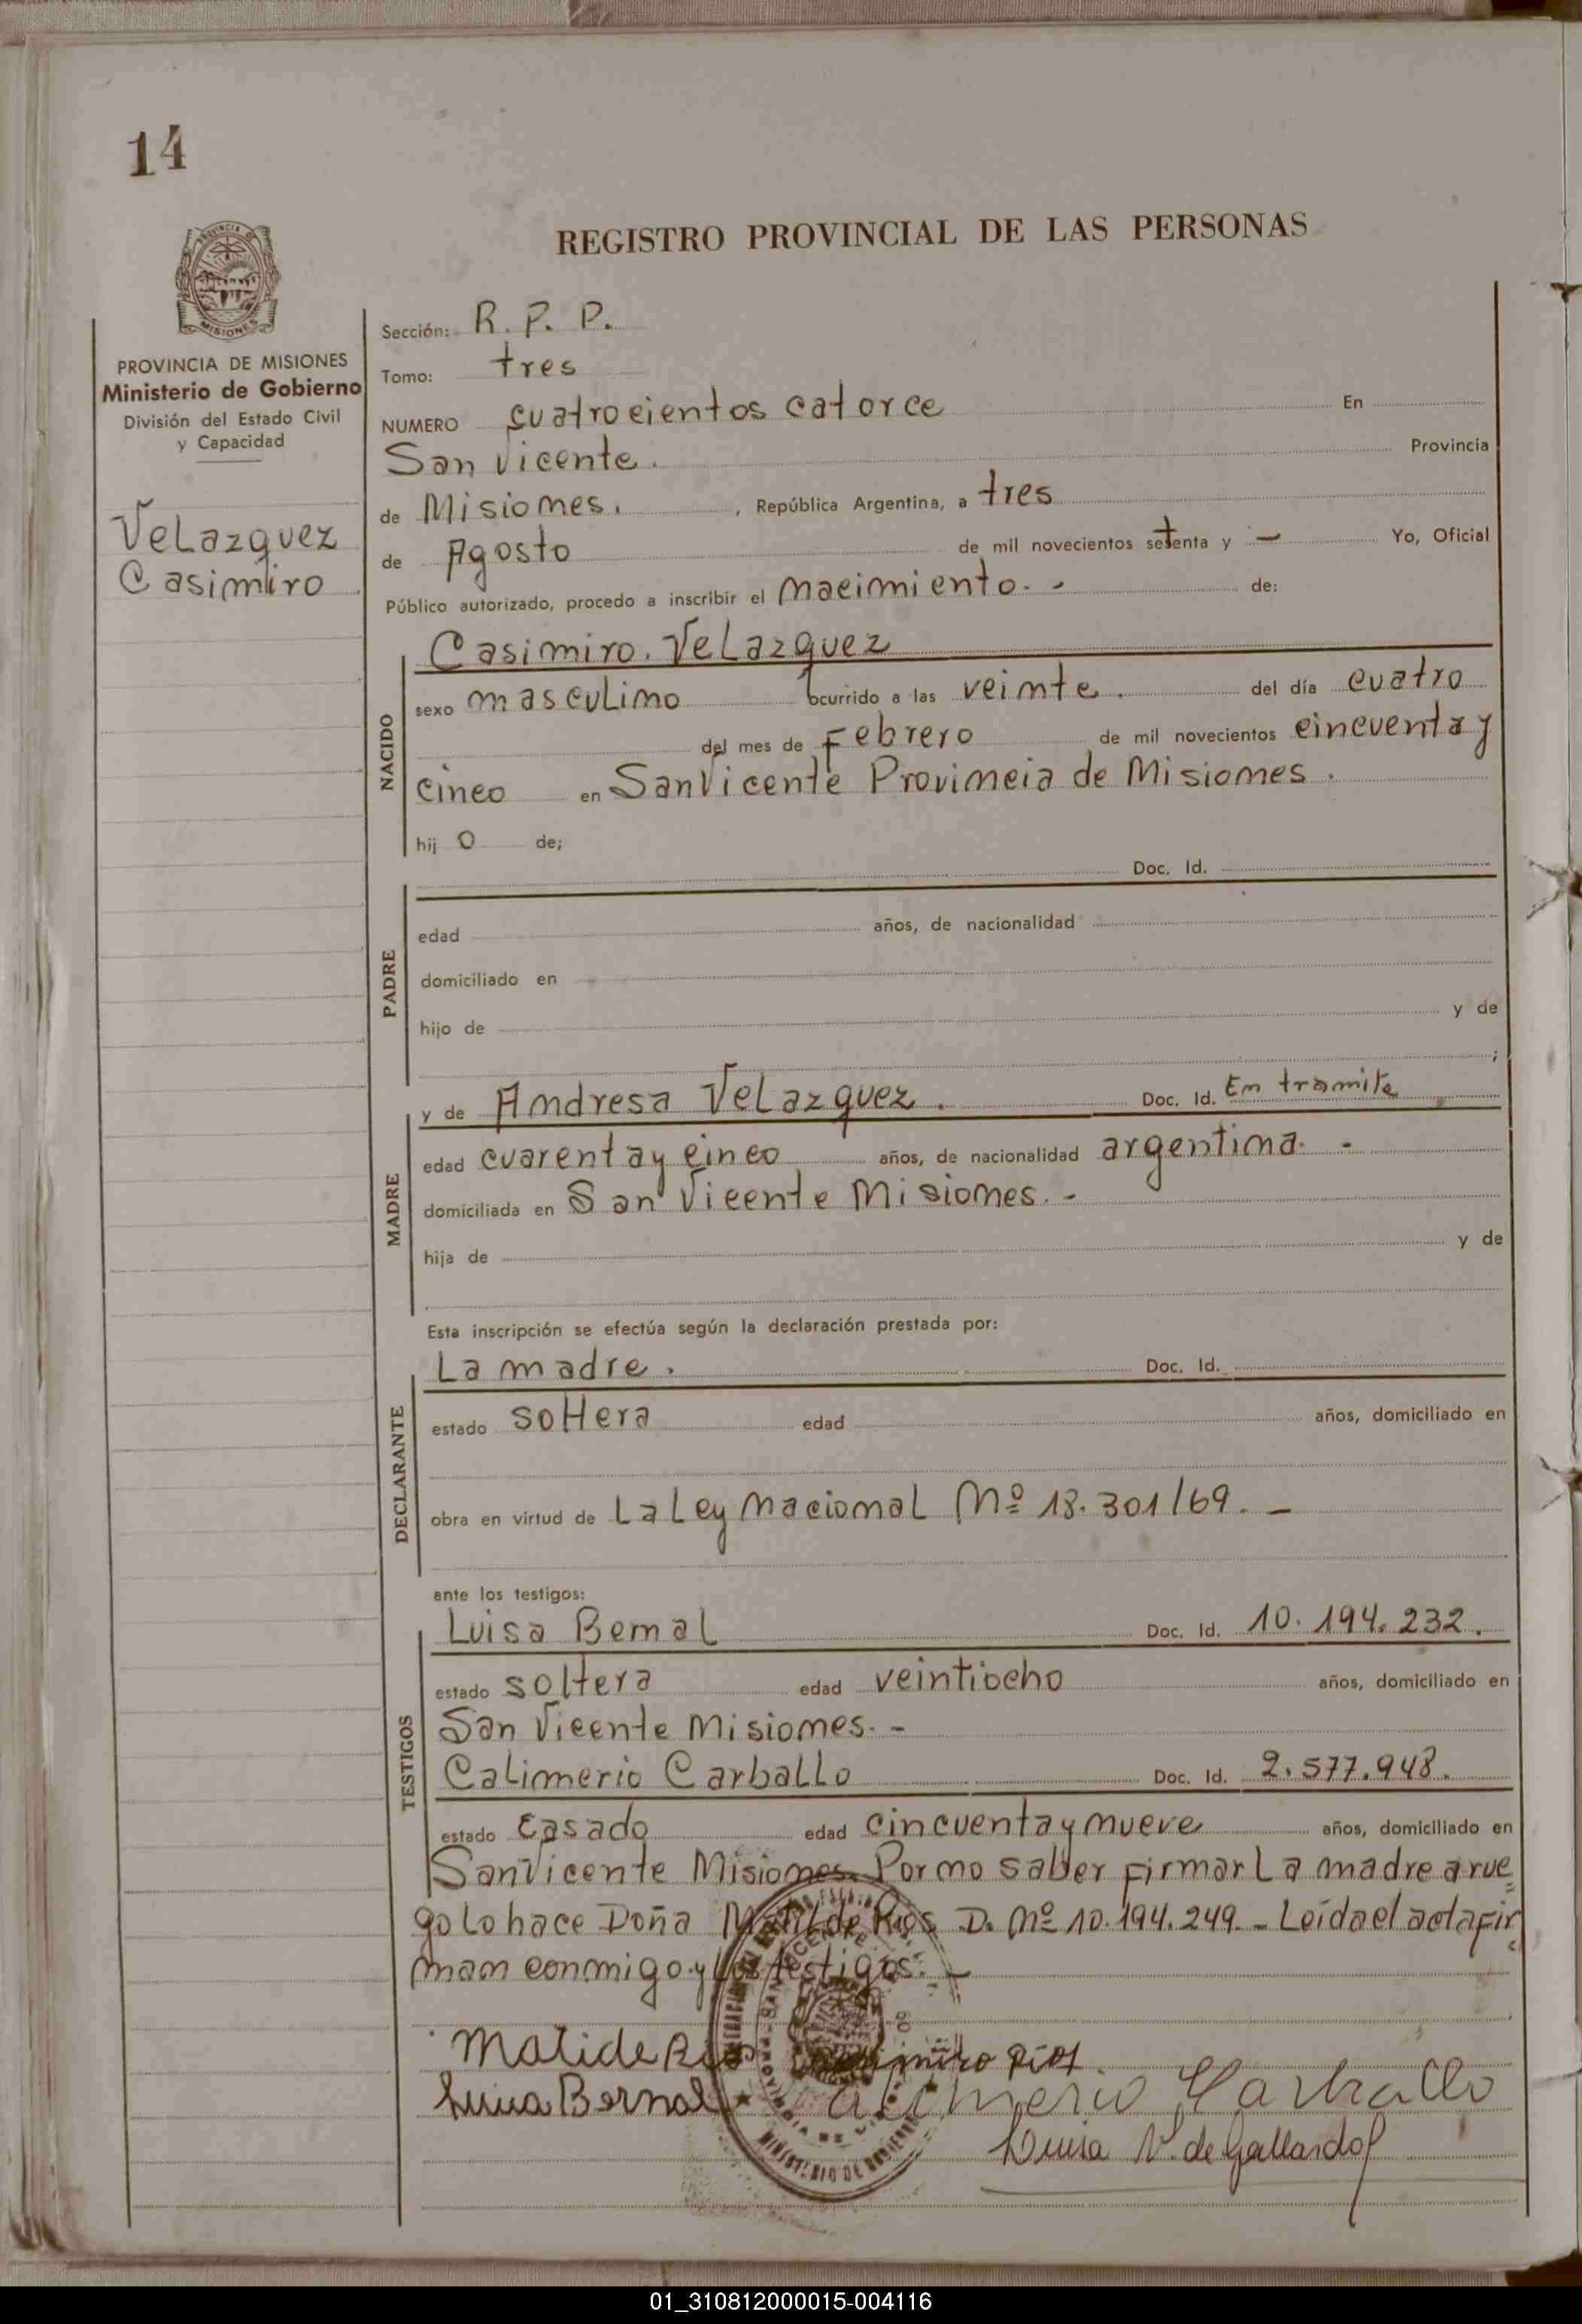 14
REGISTRO PROVINCIAL DE LAS PERSONAS
PROVINCIA DE
MISIONES
PROVINCIA DE MISIONES
Ministerio de Gobierno
División del Estado Civil
y Capacidad
Velazquez
Casimiro
Sección: R. P. P.
Tomo: tres
NUMERO cuatrocientos catorce En
San Vicente. Provincia
de Misiones. , República Argentina, a tres
de Agosto de mil novecientos setenta y — Yo, Oficial
Público autorizado, procedo a inscribir el nacimiento. - de:
Casimiro. Velazquez
NACIDO
sexo masculino ocurrido a las veinte. del día cuatro
del mes de Febrero de mil novecientos cincuenta y
cinco en San Vicente Provincia de Misiones.
hij o de;
Doc. Id.
PADRE
edad años, de nacionalidad
domiciliado en
hijo de y de
;
MADRE
y de Andresa Velazquez. Doc. Id. En tramite
edad cuarenta y cinco años, de nacionalidad argentina. -
domiciliada en San Vicente Misiones. -
hija de y de
Esta inscripción se efectúa según la declaración prestada por:
DECLARANTE
La madre. Doc. Id.
estado soltera edad años, domiciliado en
obra en virtud de La Ley Nacional Nº 18.301/69. —
ante los testigos:
TESTIGOS
Luisa Bernal Doc. Id. 10.194.232.
estado soltera edad veintiocho años, domiciliado en
San Vicente Misiones. -
Calimerio Carballo Doc. Id. 2.577.948.
estado casado edad cincuenta y nueve años, domiciliado en
San Vicente Misiones. Por no saber firmar La madre a rue=
go lo hace Doña Matilde Rios D. Nº 10.194.249. - Leída el acta fir=
man conmigo y los testigos. —
Matide Rios Rios
Luisa Bernal Calimerio Carballo
MINISTERIO DE GOBIERNO
Luisa V. de Gallardo
01_310812000015-004116